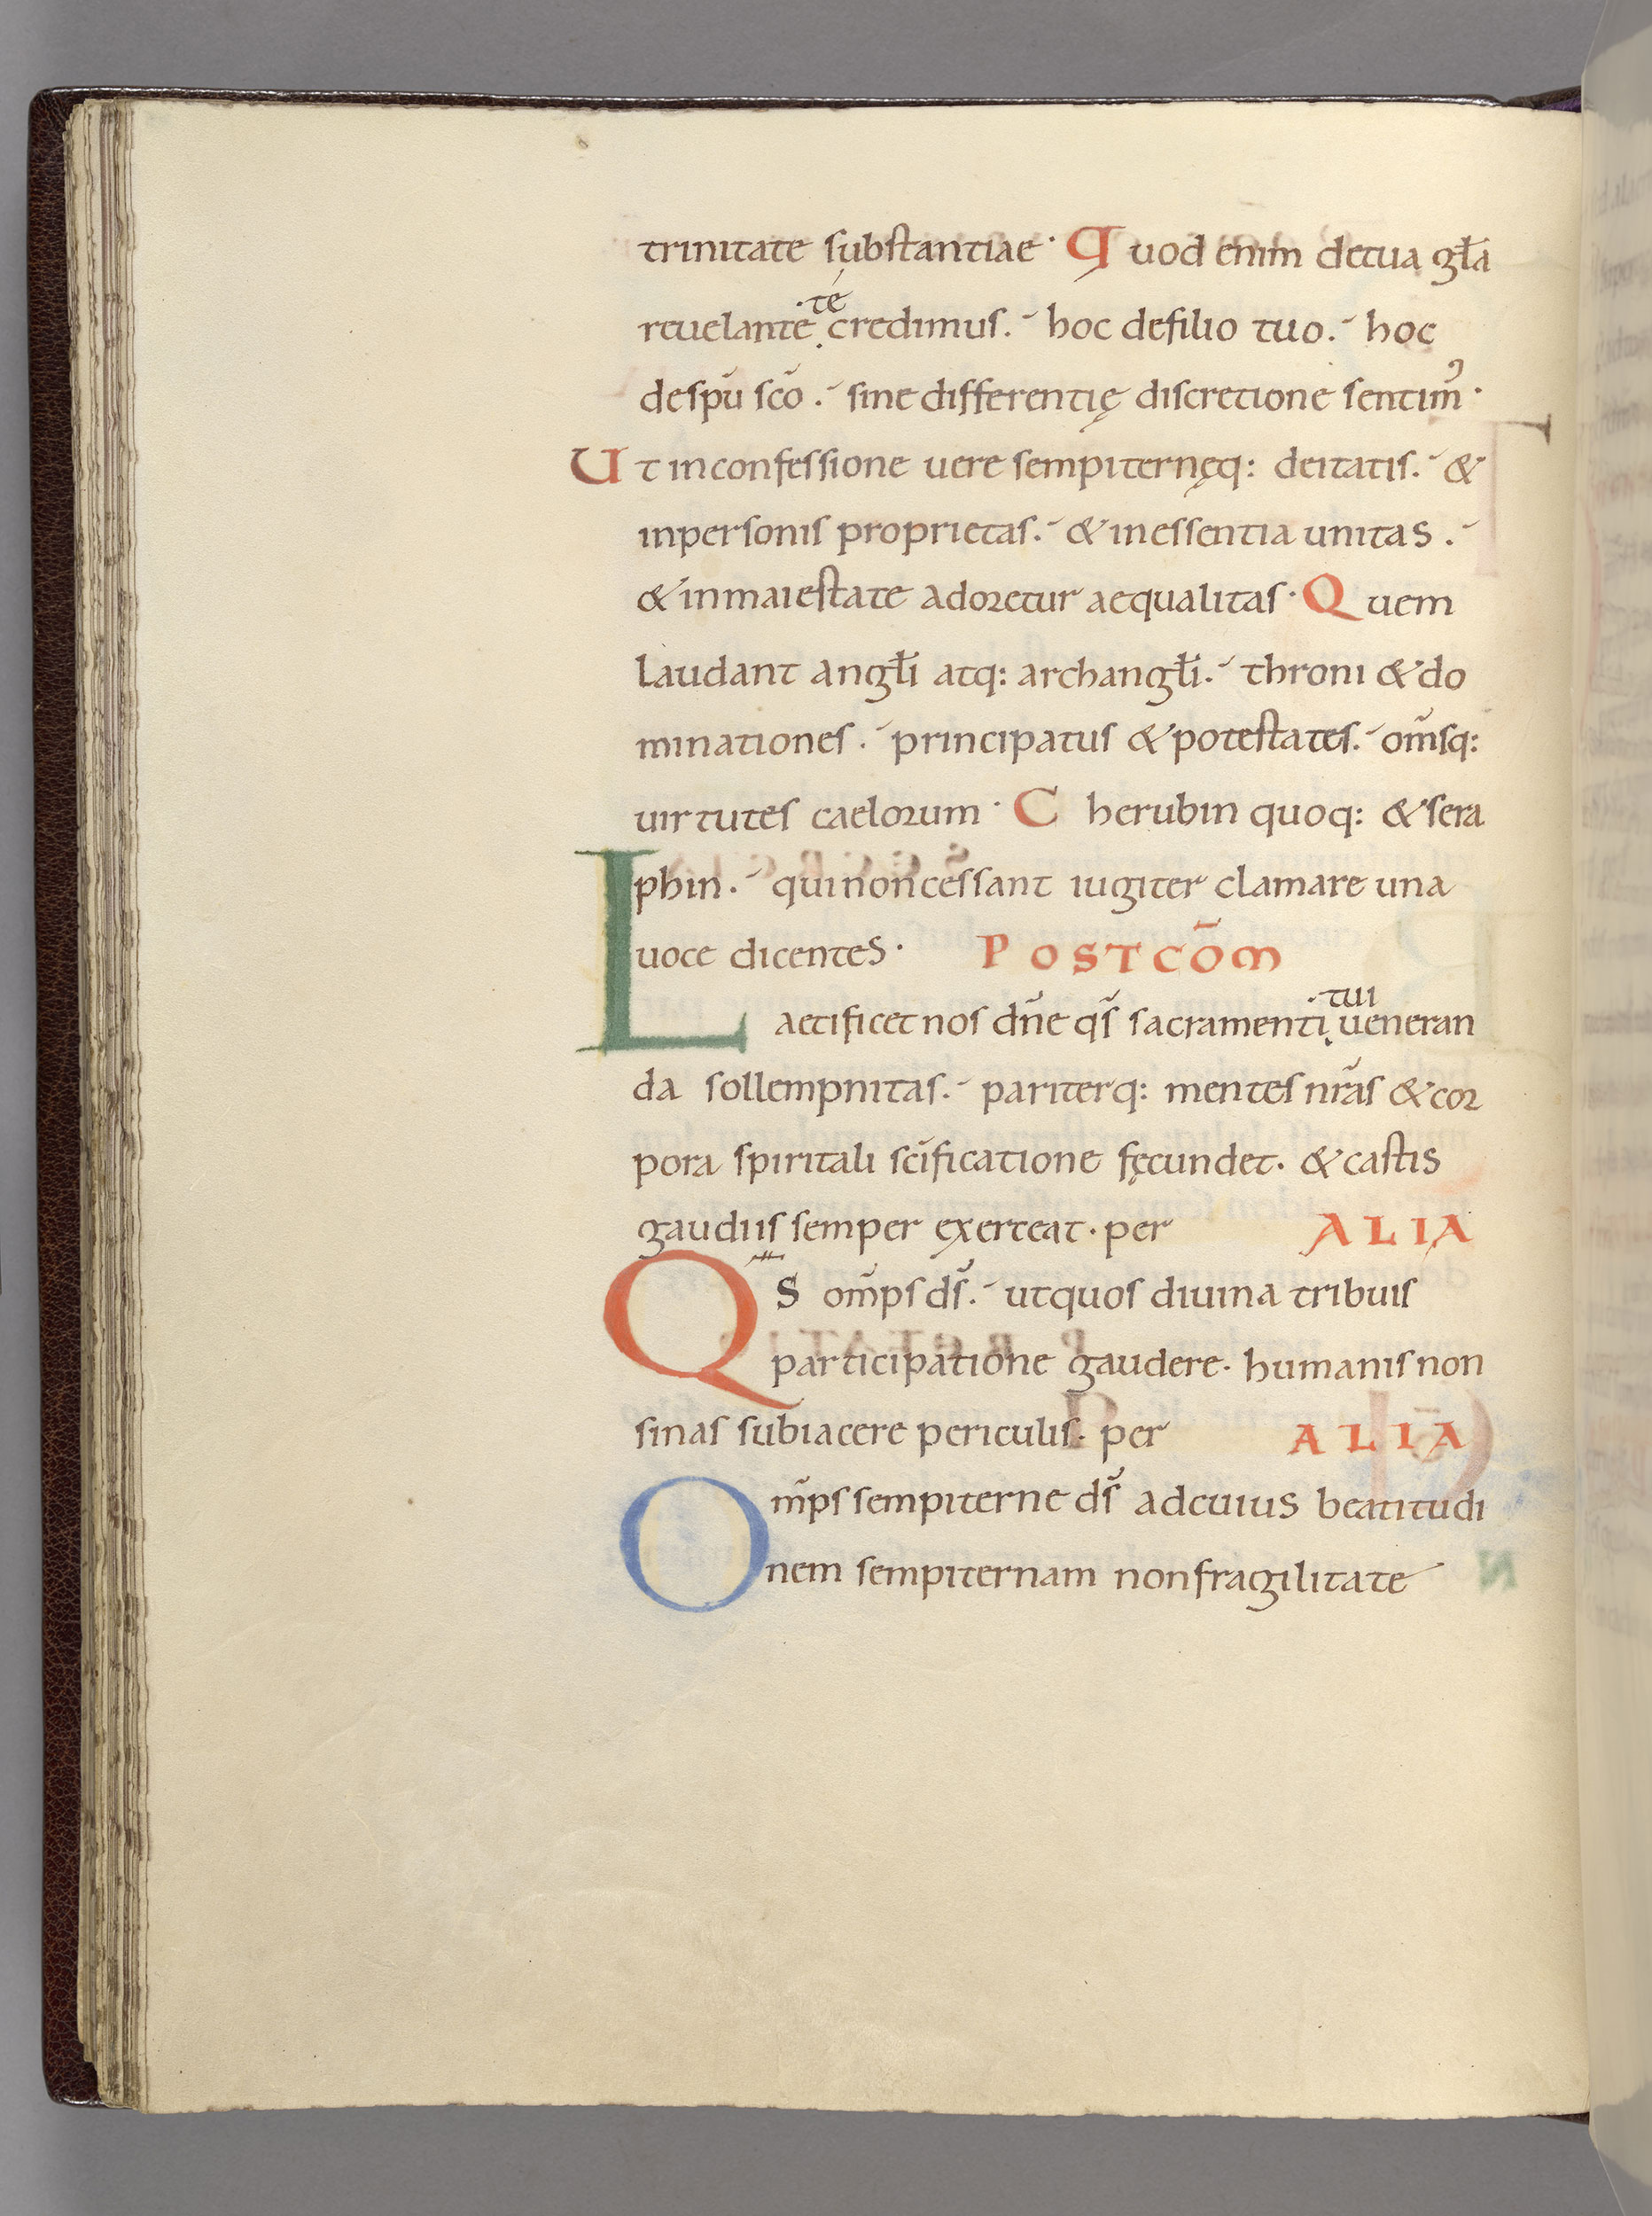 trinitate substantiae· Quod enim detua gła
reuelante ·te credimus.´ hoc defilio tuo.´ hoc
despū sc̄o .´ sine differentię discretione sentim̄ꝰ·
Ut inconfessione uere sempiternęq: deitatis.´ &
inpersonis proprietas.´ & inessentia unitas .´
& inmaiestate adoretur aequalitas· Quem
laudant angłi atq: archangłi.´ throni & do
minationes .´ principatus & potestates.´ om̄sq:
uirtutes caelorum · Cherubin quoq: & sera
phin.´ quinoncessant iugiter clamare una
uoce dicentes· POSTCŌM
Laetificet nos dn̄e qs̄ sacramenti ·tui ueneran
da sollempnitas.´ pariterq: mentes nr̄as & cor
pora spiritali sc̄ificatione fęcundet. & castis
gaudiis semper exerteat· per ALIA
QS om̄ps ds̄.´ utquos diuina tribuis
participatione gaudere· humanis non
sinas subiacere periculis· per ALIA
Om̄ps sempiterne ds̄ adcuius beatitudi
nem sempiternam nonfragilitate